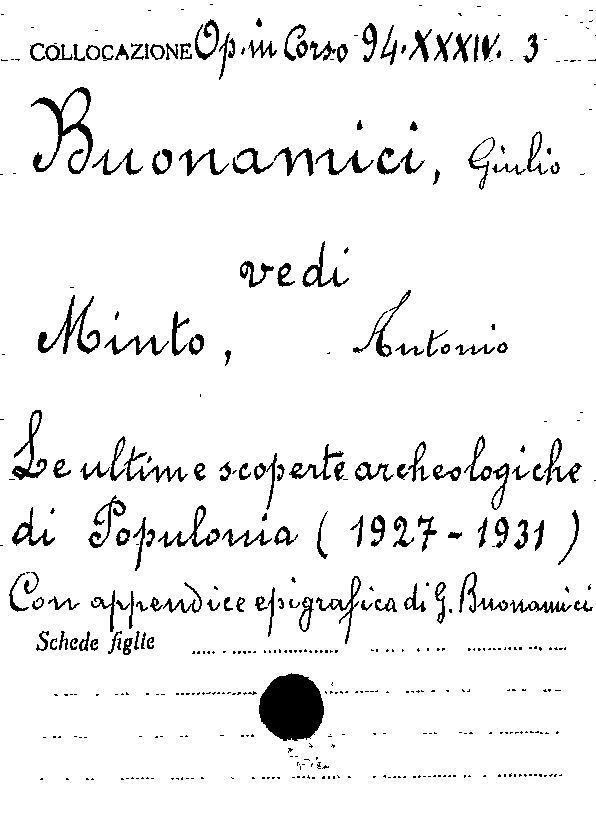 COLLOCAZIONE Op. in Corso 94. XXXIV. 3
Buonamici, Giulio
vedi
Minto, Antonio
Le ultime scoperte archeologiche
di Populonia ( 1927 - 1931 )
Con appendice epigrafica di G. Buonamici
Schede figlie